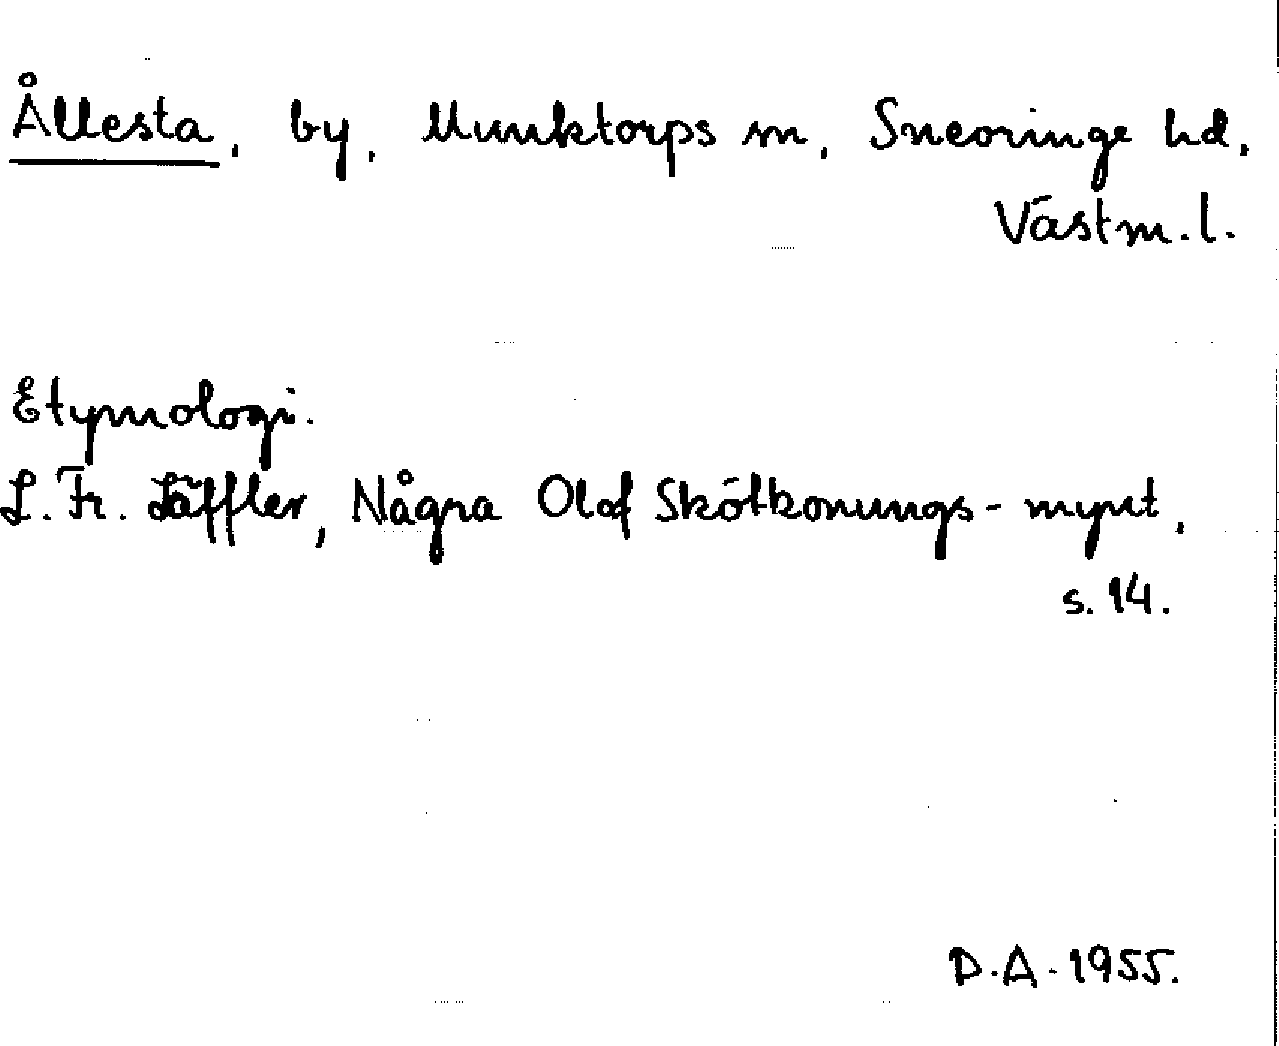 Ållesta, by, Munktorps sn, Snevringe hd,
Västm.l.
Etymologi.
L. Fr. Läffler, Några Olof Skötkonungs-mynt,
s. 14.
D.A. 1955.